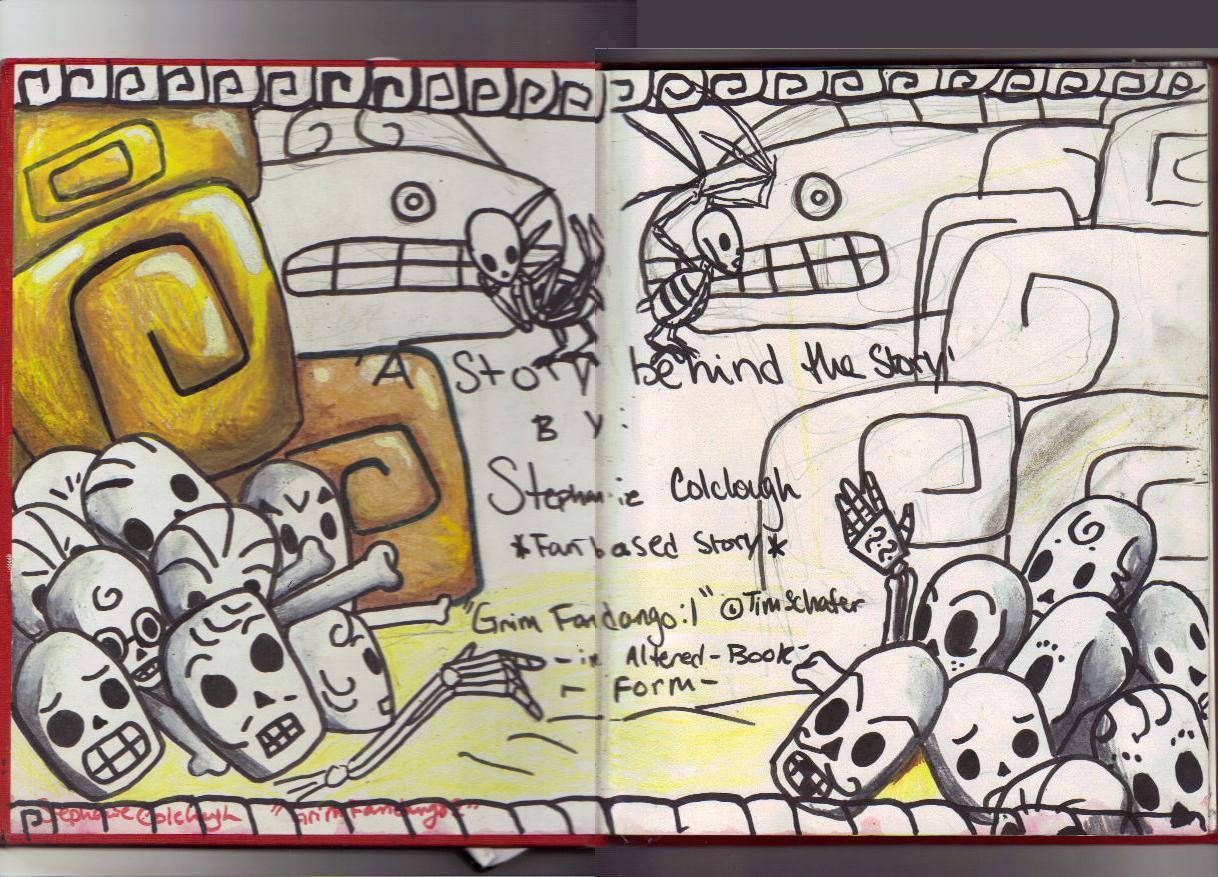 "A Story behind the Story"
By:
Stephanie Colclough
*Fan based Story*
"Grim Fandango:1" © Tim Schafer
-in Altered-Book-
- Form-
??
Stephanie Colclough "Grim Fandango"